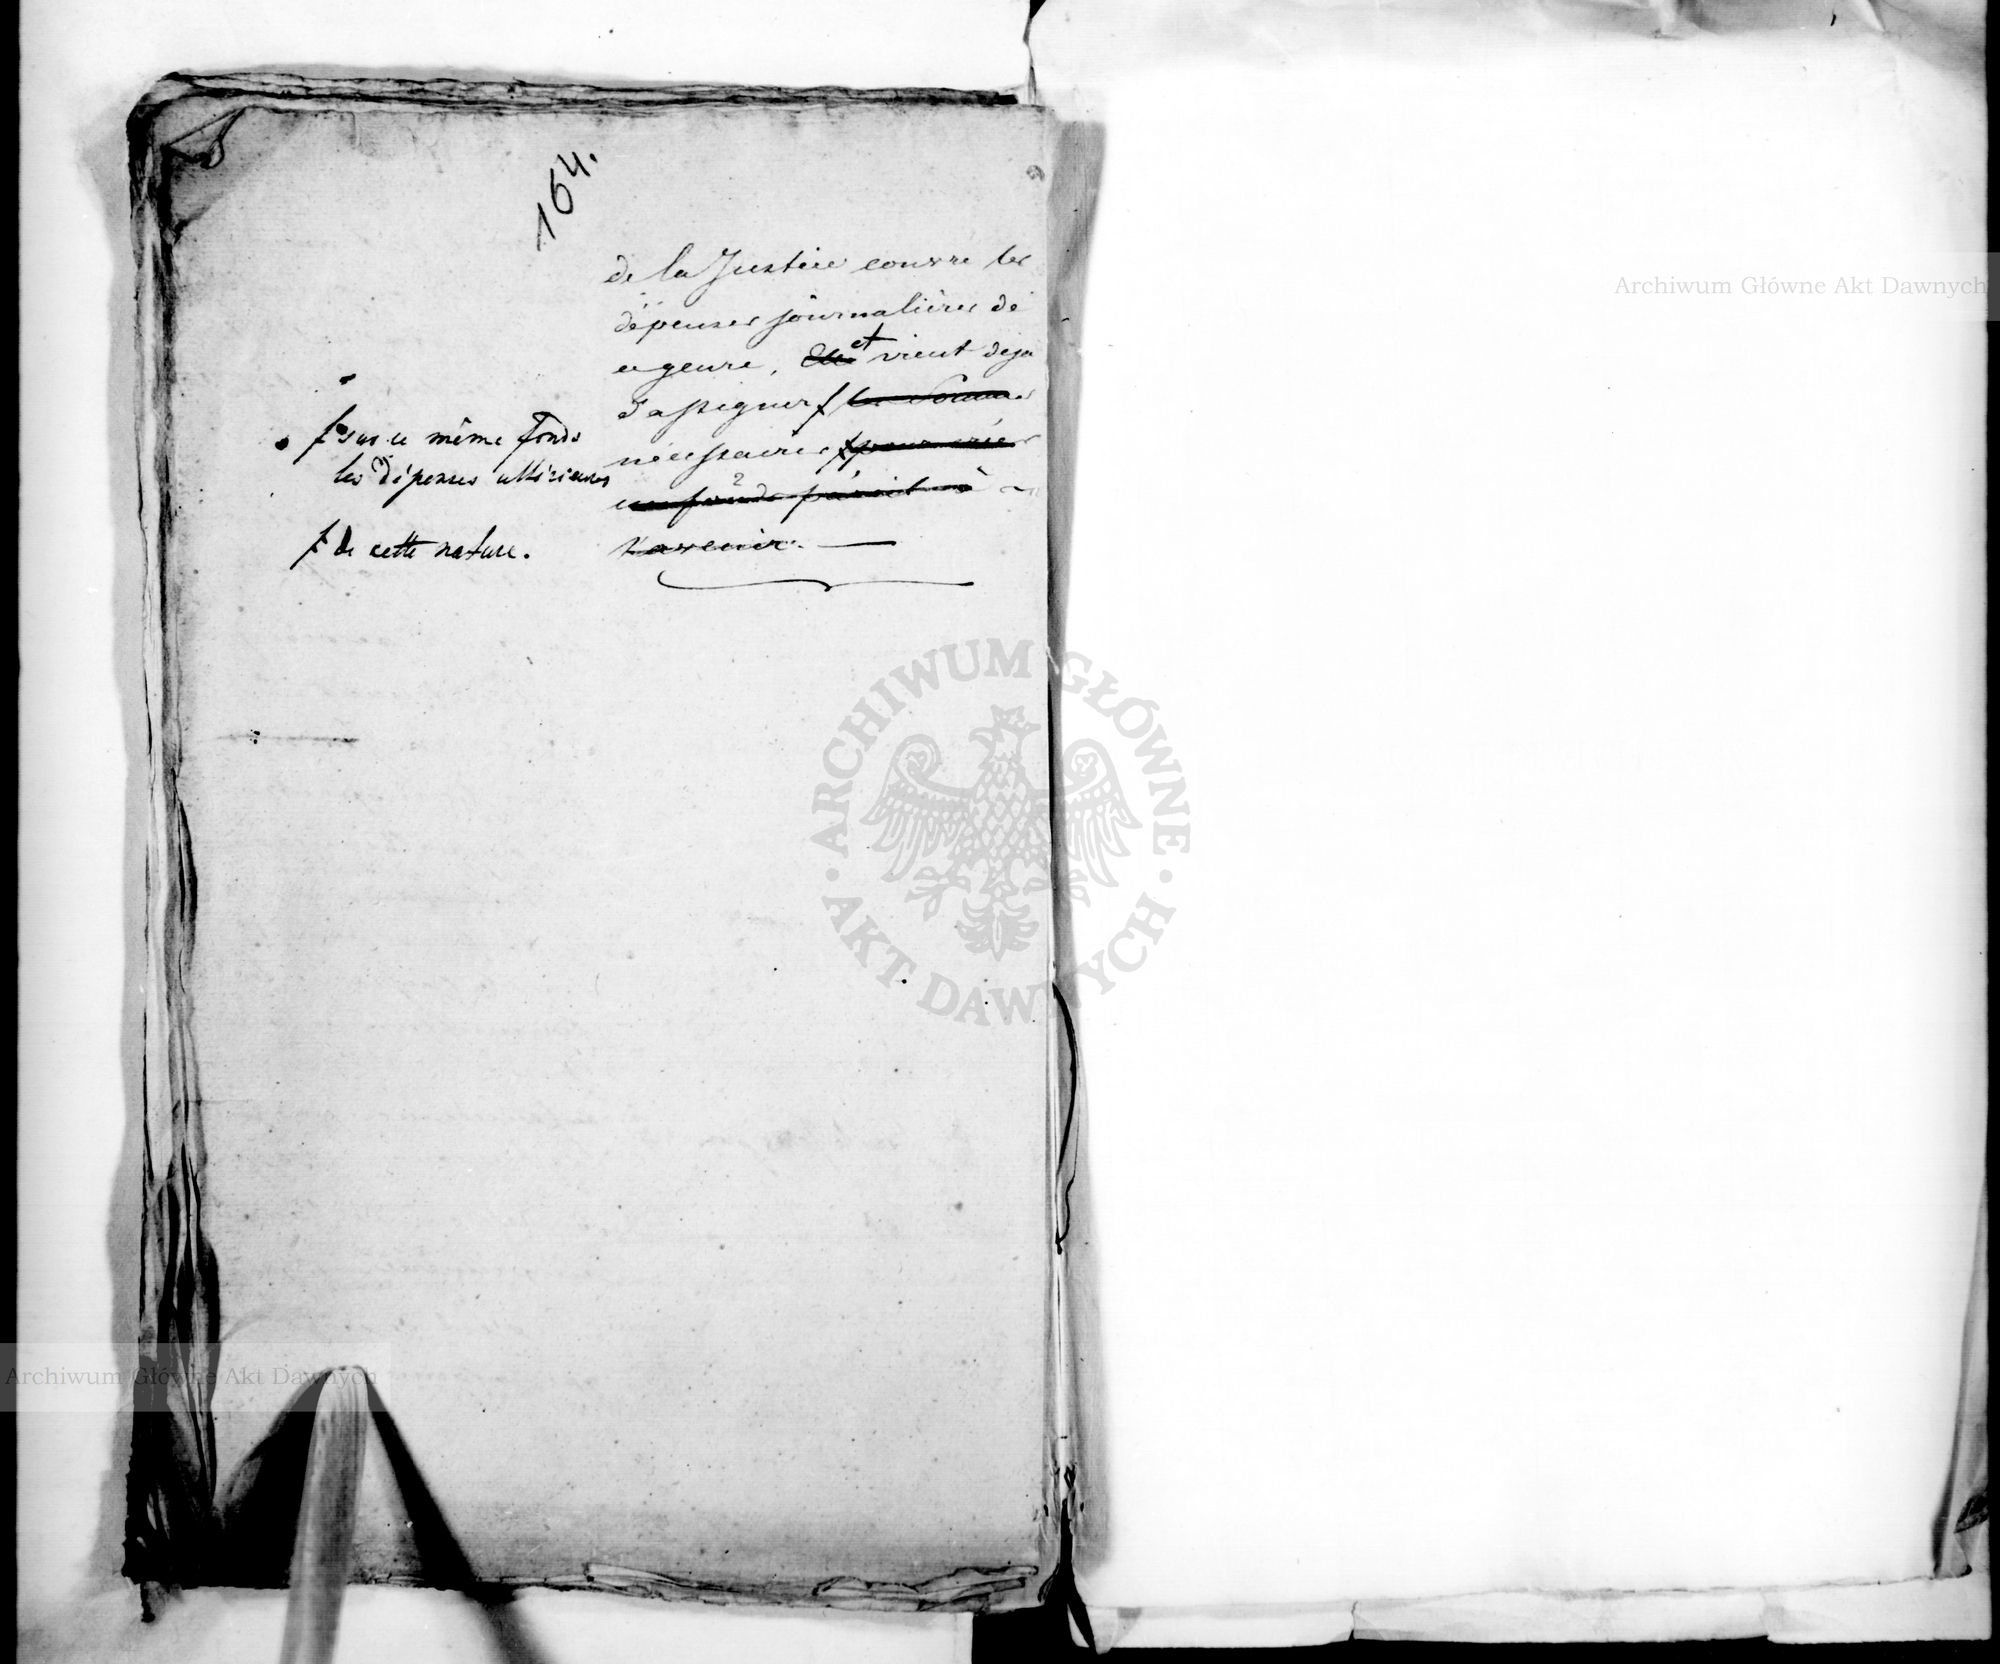 164.
de la Justice couvre les
dépenses journalières de
ce genre, et vient deja
d'assigner ƒ les Sommes
nécessaires ƒ pour
un fonds
l'avenir. —
ƒ sur ce même fonds
les dépenses ultérieures
ƒ de cette nature.
Archiwum Główne Akt Dawnych
ARCHIWUM GŁÓWNE · AKT DAWNYCH ·
Archiwum Główne Akt Dawnych